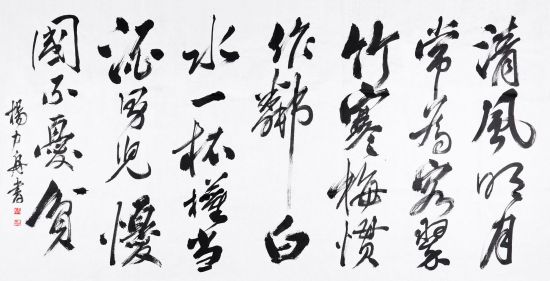 清風明月
常為客翠
竹寒梅慣
作鄰白
水一杯權当
酒男兒懮
國不憂貧
楊力舟書